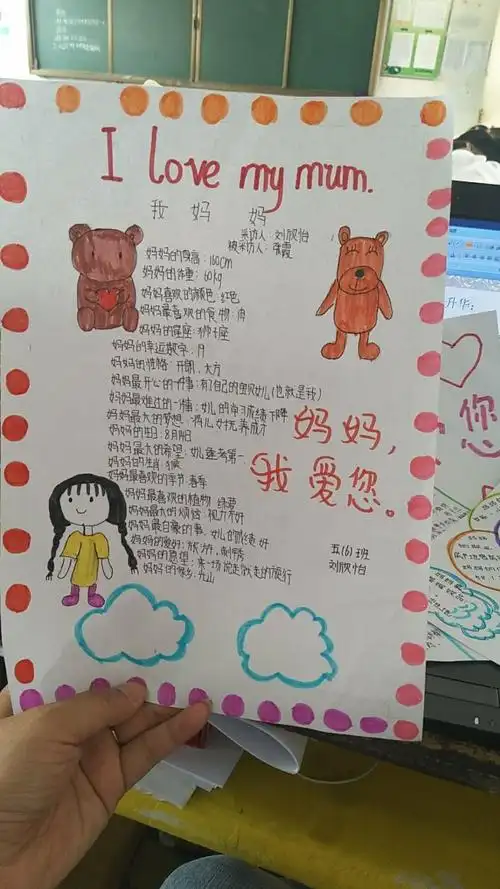 I love my mum.
我 妈 妈
采访人：刘欣怡
被采访人：
妈妈的身高：160cm
妈妈的体重：60kg
妈妈喜欢的颜色：红色
妈妈最喜欢的食物：肉
妈妈的星座：狮子座
妈妈的幸运数字：19
妈妈的性格：开朗，大方
妈妈最开心的一件事：有了自己的宝贝女儿（也就是我）
妈妈最难过的一件事：女儿的学习成绩下降
妈妈最大的梦想：把儿女抚养成才
妈妈的生日：8月19日
妈妈最大的希望：女儿每考第一
妈妈的生肖：猴
妈妈最喜欢的季节：春季
妈妈最喜欢的植物：绿萝
妈妈最大的烦恼：视力不好
妈妈最自豪的事：女儿的成绩好
妈妈的爱好：旅游，刺绣
妈妈的愿望：来一场说走就走的旅行
妈妈的家乡：光山
妈妈，
我爱您。
五（6）班
刘欣怡
您